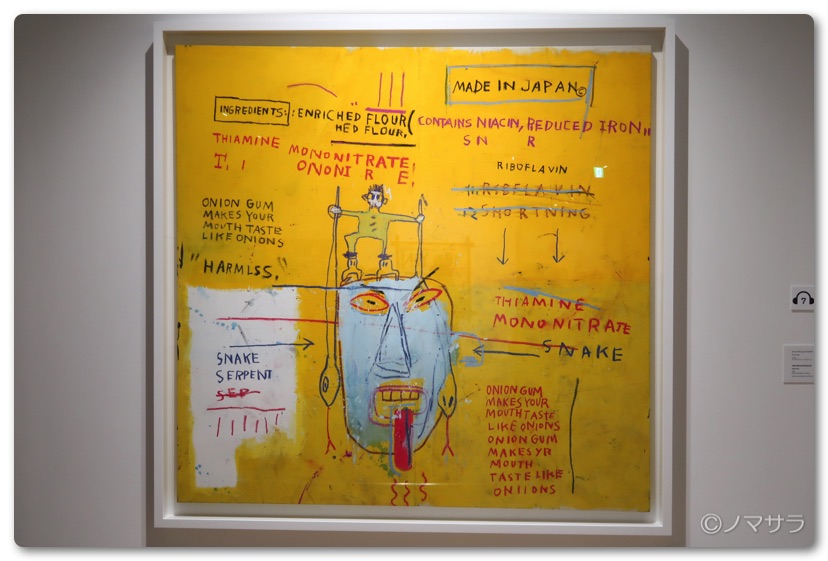 MADE IN JAPAN©
INGREDIENTS: : ENRICHED FLOUR(
HED FLOUR,
CONTAINS NIACIN, REDUCED IRON,,
S N R
THIAMINE MONONITRATE,
T, I ONONI R E,
RIBOFLAVIN
11. RIBFLAVIN
12 SHORTNING
ONION GUM
MAKES YOUR
MOUTH TASTE
LIKE ONIONS
"HARMLSS."
THIAMINE
MONONITRATE
SNAKE
SNAKE
SERPENT
SEP
ONION GUM
MAKES YOUR
MOUTH TASTE
LIKE ONIONS
ONION GUM
MAKES YR
MOUTH
TASTE LIKE
ONIIONS
?
©ノマサラ